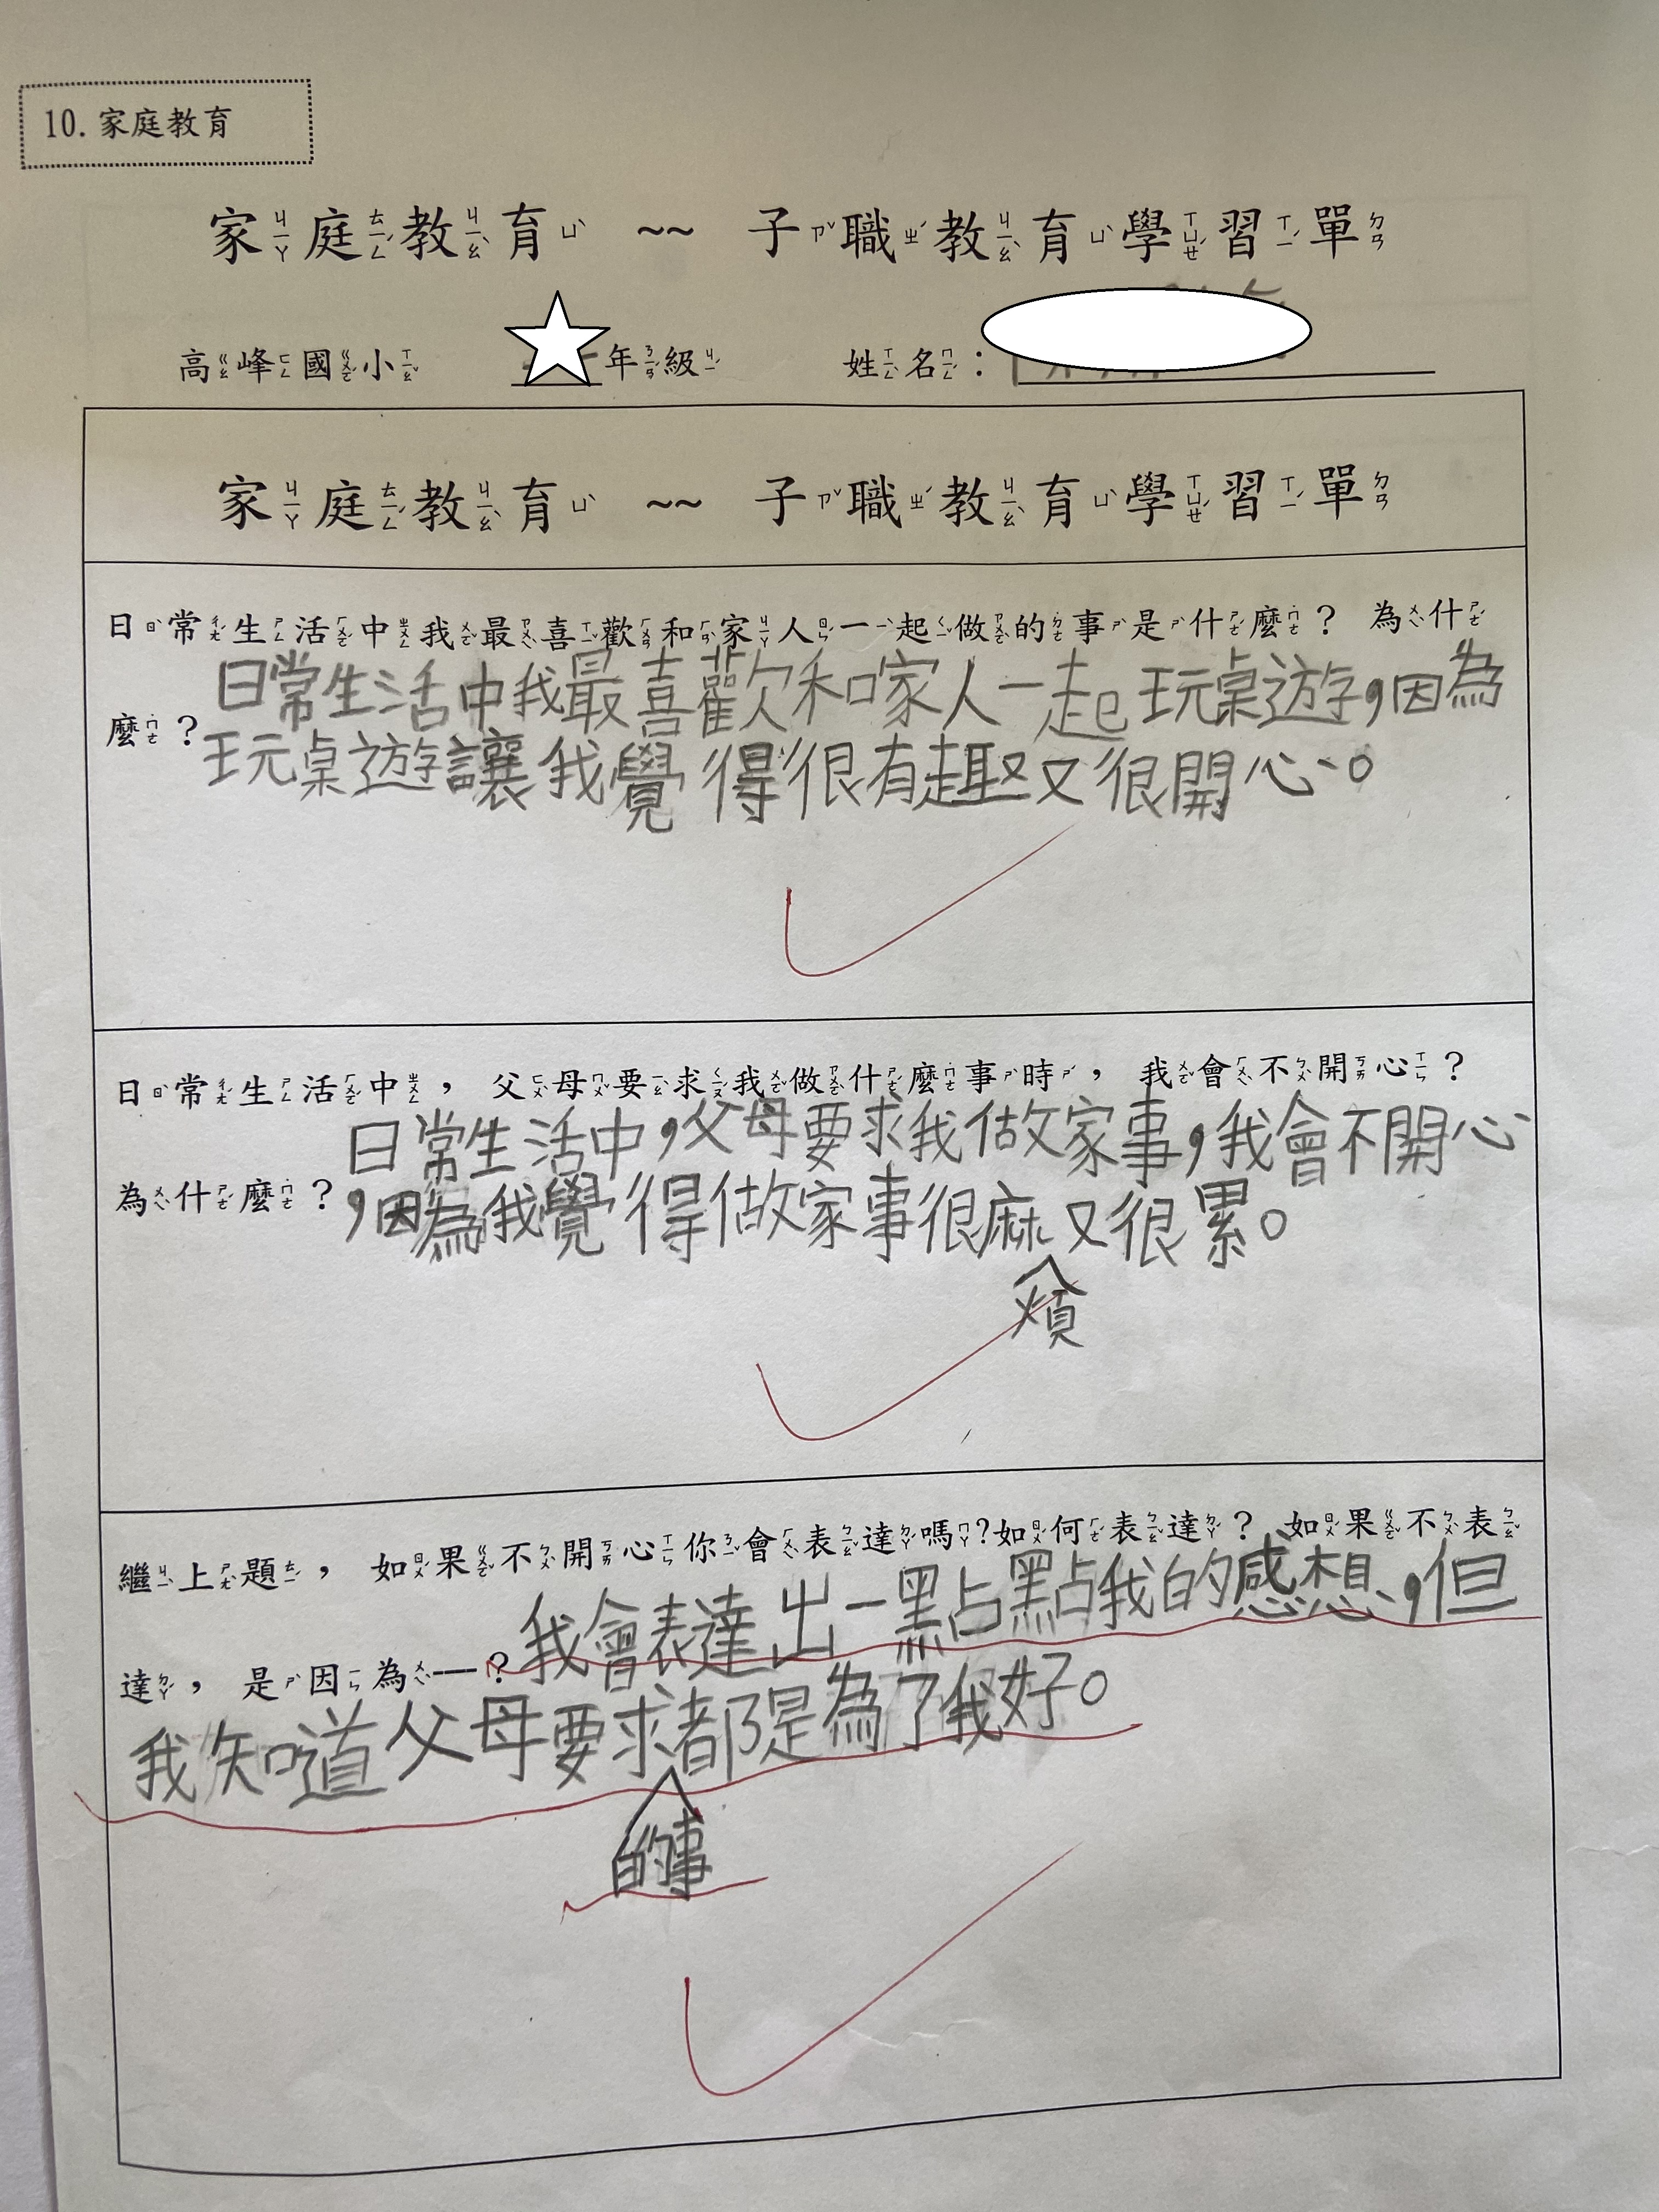 10. 家庭教育
家庭教育 ~~ 子職教育學習單
高峰國小 年級 姓名：
家庭教育 ~~ 子職教育學習單
日常生活中我最喜歡和家人一起做的事是什麼？ 為什
日常生活中我最喜歡和家人一起玩桌遊，因為
麼？
玩桌遊讓我覺得很有趣又很開心。
日常生活中， 父母要求我做什麼事時， 我會不開心？
日常生活中，父母要求我做家事，我會不開心
為什麼？
，因為我覺得做家事很麻又很累。
煩
繼上題， 如果不開心你會表達嗎？如何表達？ 如果不表
我會表達出一點點我的感想，但
達， 是因為——？
我知道父母要求都是為了我好。
的事